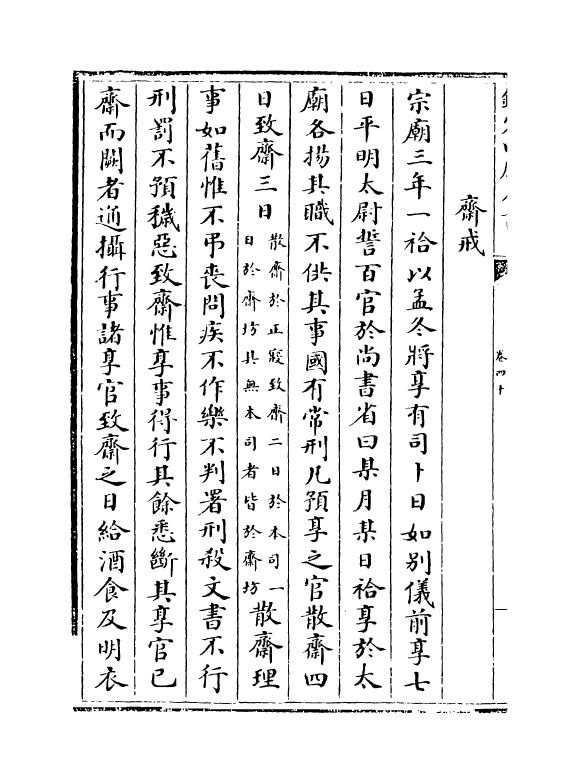 卷四十
齋戒
宗廟三年一祫以孟冬將享有司卜日如別儀前享七
日平明太尉誓百官於尚書省曰某月某日祫享於太
廟各揚其職不供其事國有常刑凡預享之官散齋四
日致齋三日
散齋於正寢致齋二日於本司一
日於齋坊其無本司者皆於齋坊
散齋理
事如舊惟不弔喪問疾不作樂不判署刑殺文書不行
刑罰不預穢惡致齋惟享事得行其餘悉斷其享官已
齋而闕者通攝行事諸享官致齋之日給酒食及明衣